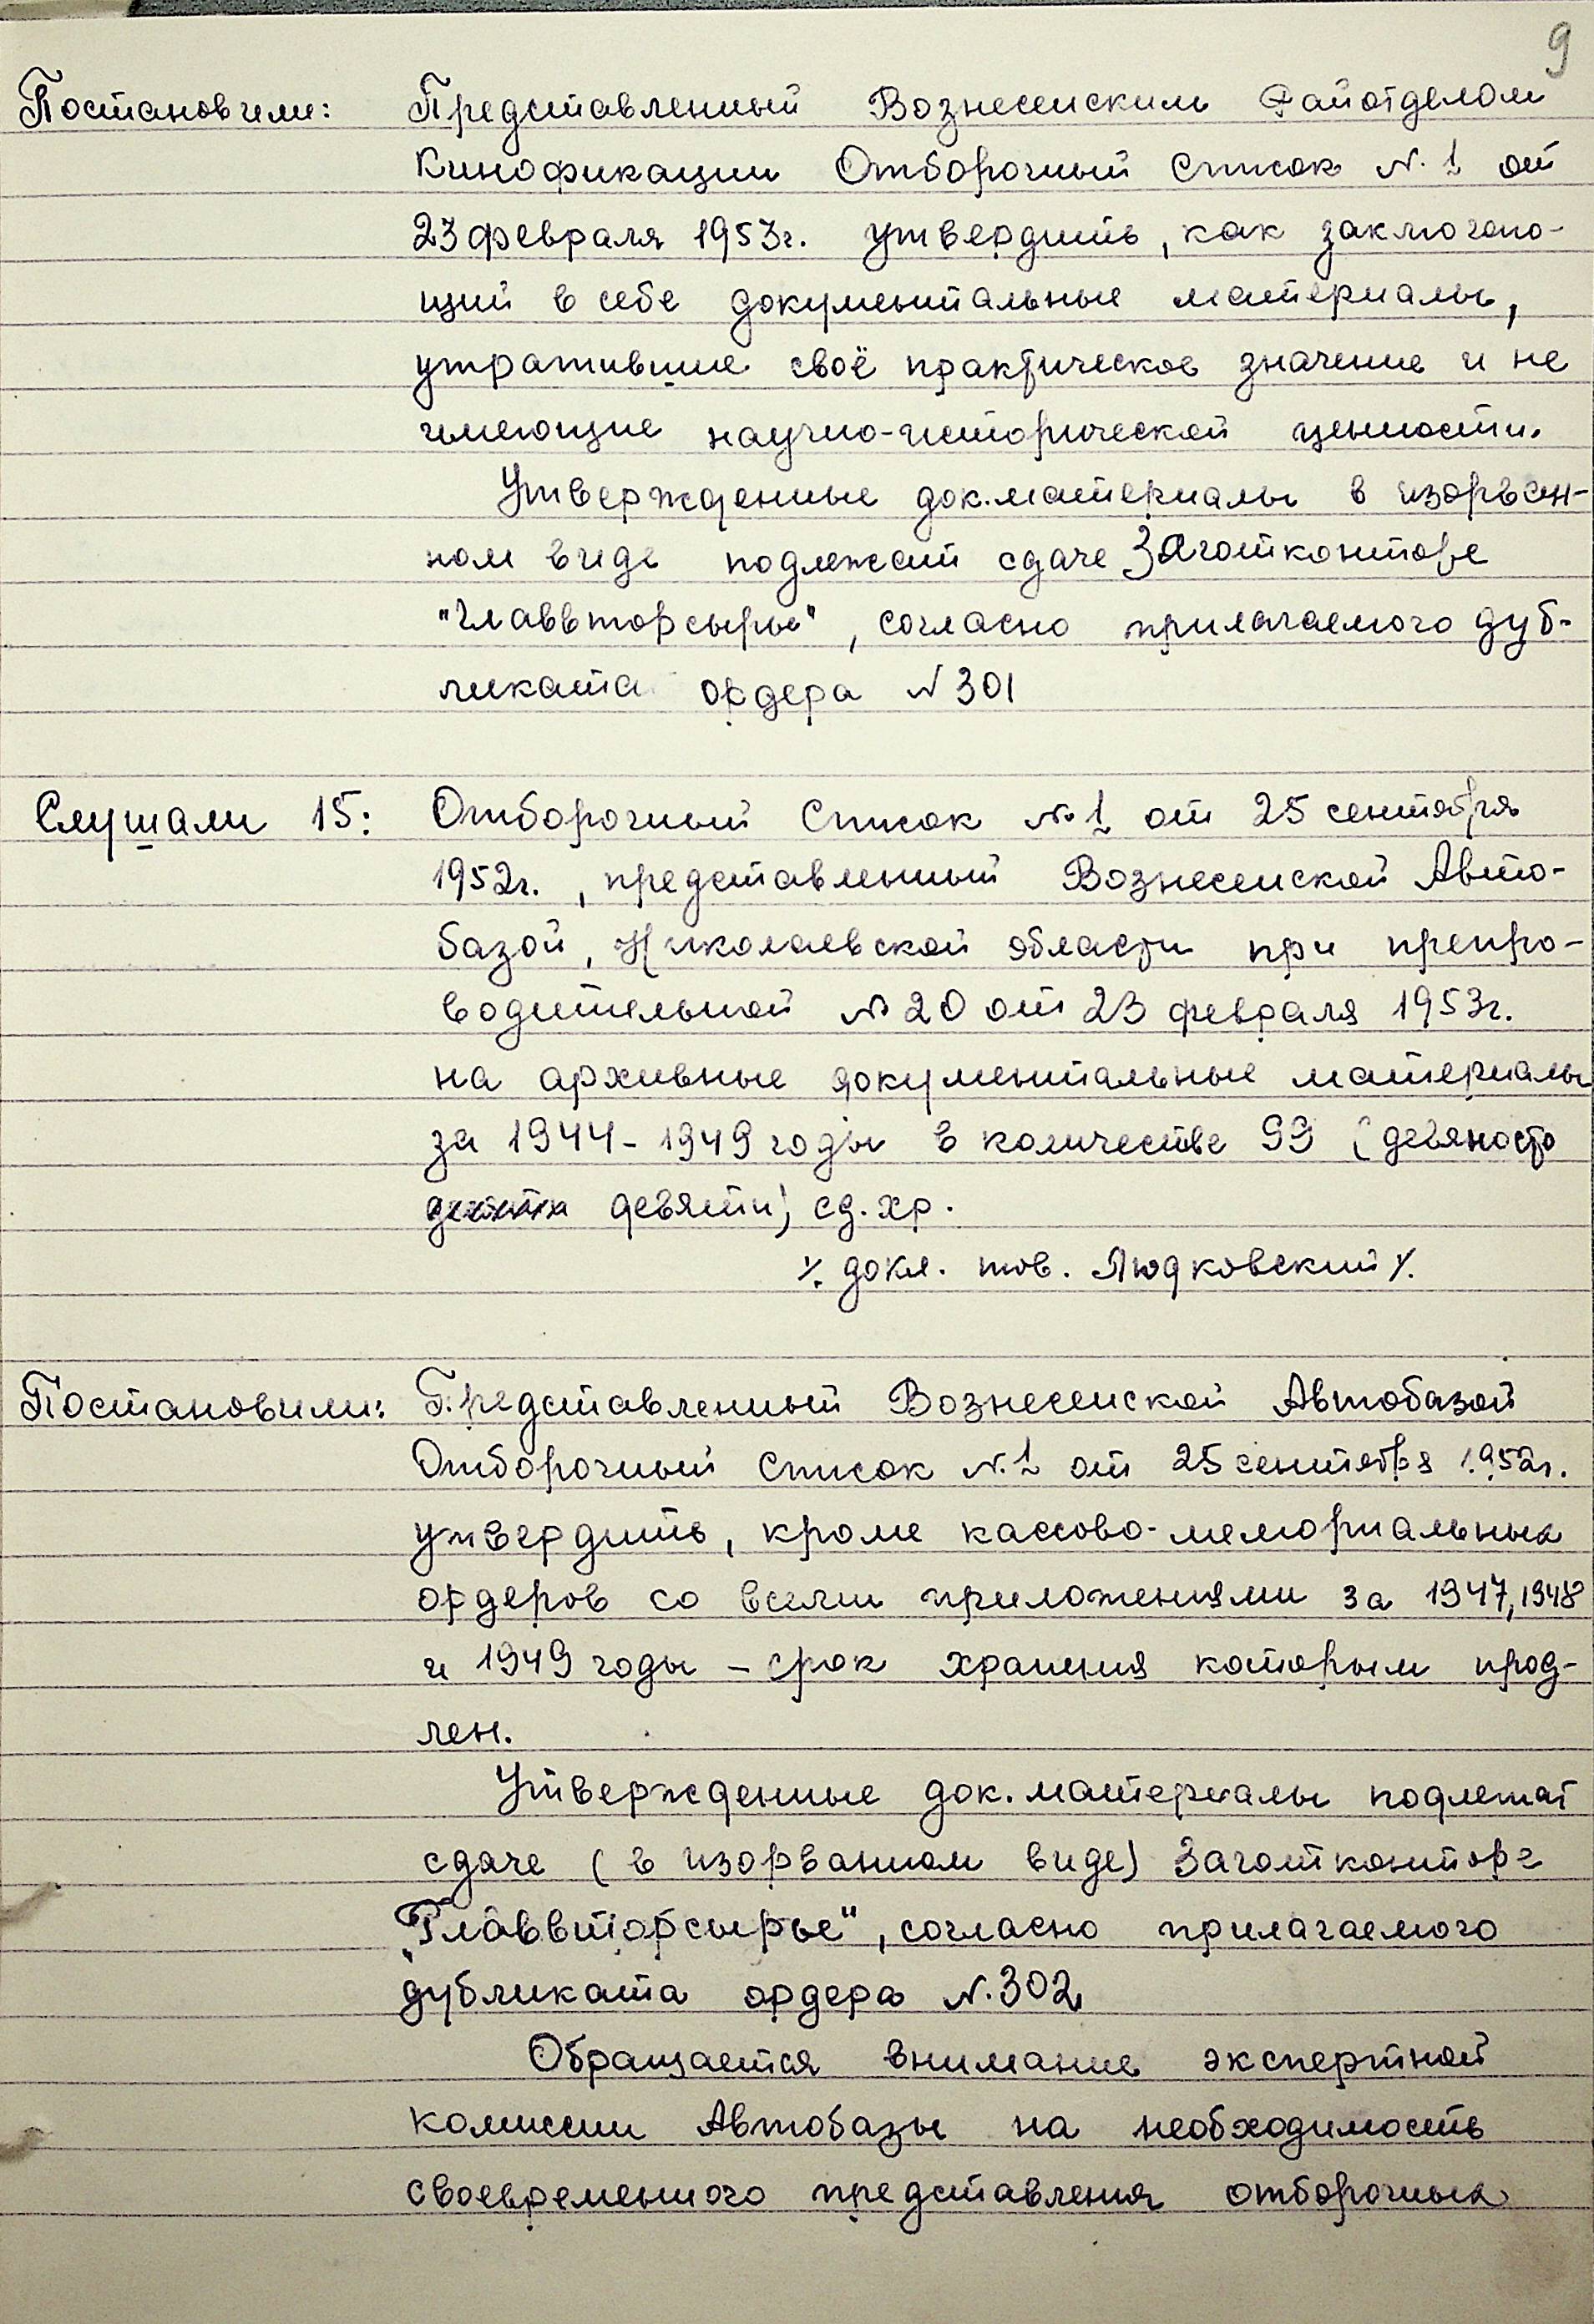 9
Постановили: Представленный Вознесенским Райотделом
Кинофикации Отборочный Список №. 1 от
23 февраля 1953г. утвердить, как заключаю-
щий в себе документальные материалы,
утратившие своё практическое значение и не
имеющие научно-исторической ценности.
Утвержденные док. материалы в изорван-
ном виде подлежат сдаче Заготконторе
"Главвторсырье", согласно прилагаемого дуб-
ликата ордера № 301
Слушали 15: Отборочный Список № 1 от 25 сентября
1952г., представленный Вознесенской Авто-
базой, Николаевской области при препро-
водительной № 20 от 23 февраля 1953г.
на архивные документальные материалы
за 1944-1949 годы в количестве 99 (девяносто
девяти) ед. хр.
/. докл. тов. Людковский /.
Постановили: Представленный Вознесенской Автобазой
Отборочный Список №. 1 от 25 сентября 1952г.
утвердить, кроме кассово-мемориальных
ордеров со всеми приложениями за 1947, 1948
и 1949 годы – срок хранения которым прод-
лен.
Утвержденные док. материалы подлежат
сдаче (в изорванном виде) Заготконторе
„Главвторсырье", согласно прилагаемого
дубликата ордера №. 302
Обращается внимание экспертной
комиссии Автобазы на необходимость
своевременного представления отборочных